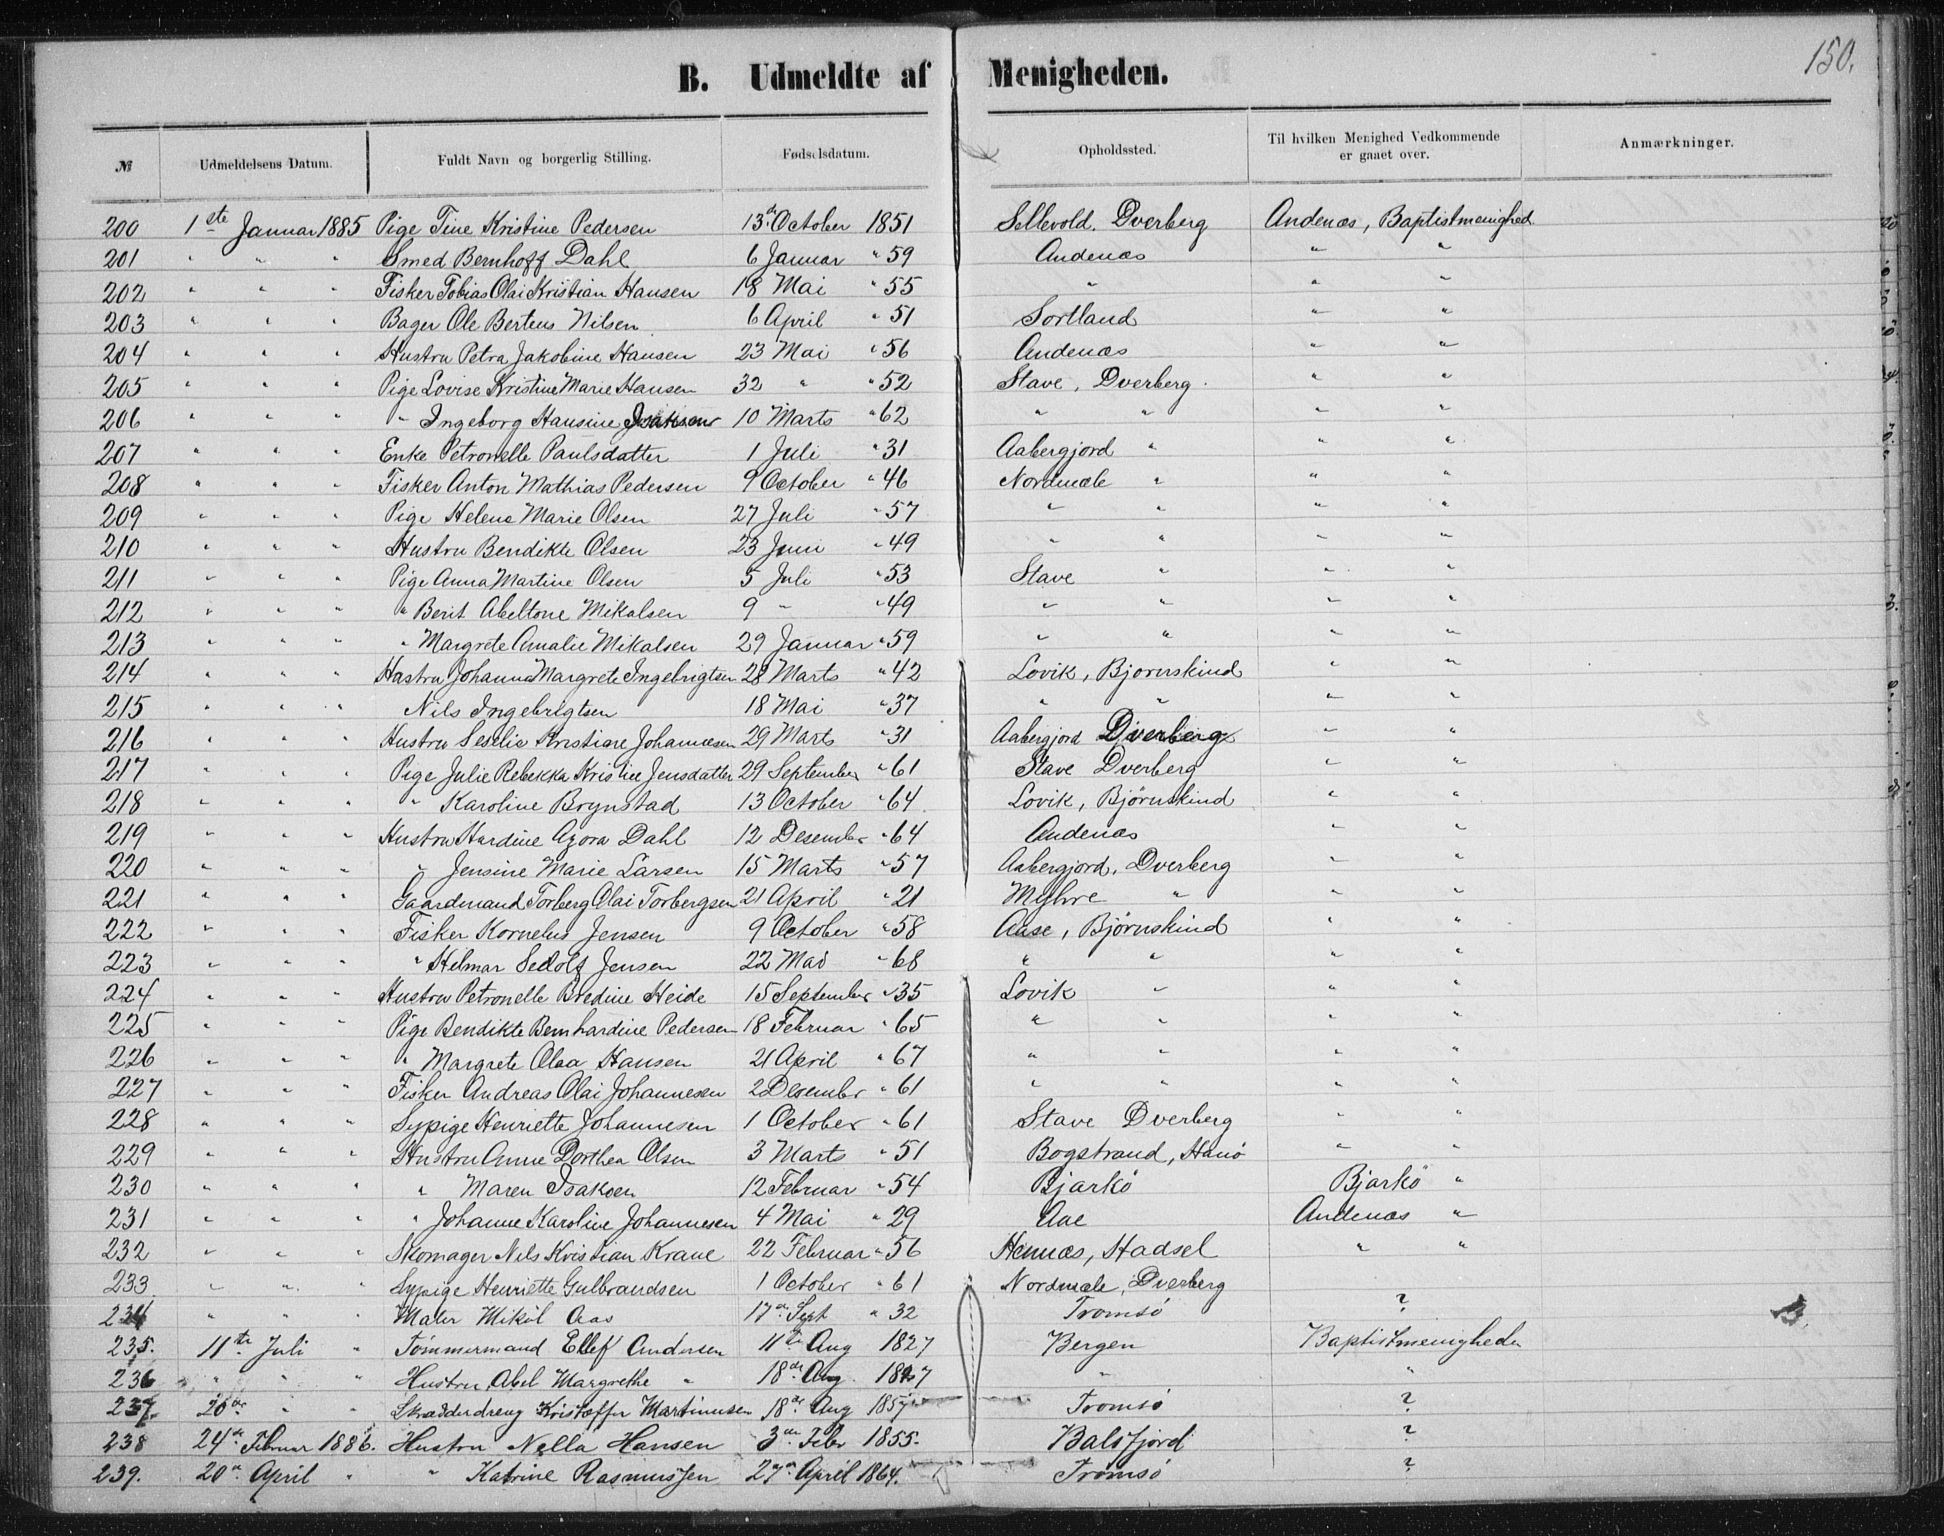 150.
B. Udmeldte af Menigheden.
№ Udmeldelsens Datum. Fuldt Navn og borgerlig Stilling. Fødselsdatum. Opholdssted. Til hvilken Menighed Vedkommende er gaaet over. Anmærkninger.
200 1ste Januar 1885 Pige Tine Kristine Pedersen 13de October 1851 Sellevold, Dverberg Andenæs, Baptistmenighed
201 " " " Smed Bernhoff Dahl 6 Januar " 59 Andenæs " "
202 " " " Fisker Tobias Olai Kristian Hansen 18 Mai " 55 " " "
203 " " " Bager Ole Berteus Nilsen 6 April " 51 Sortland " "
204 " " " Hustru Petra Jakobine Hansen 23 Mai " 56 Andenæs " "
205 " " " Pige Lovise Kristine Marie Hansen 32 " " 52 Stave, Dverberg. " "
206 " " " " Ingeborg Hansine Isaksen 10 Marts " 62 " " " "
207 " " " Enke Petronelle Paulsdatter 1 Juli " 31 Aabergjord " " "
208 " " " Fisker Anton Mathias Pedersen 9 October " 46 Nordmæle " " "
209 " " " Pige Helene Marie Olsen 27 Juli " 57 " " " "
210 " " " Hustru Bendikte Olsen 23 Juni " 49 " " " "
211 " " " Pige Anna Martine Olsen 5 Juli " 53 Stave " " "
212 " " " " Berit Abeltone Mikalsen 9 " " 49 " " " "
213 " " " " Margrete Amalie Mikalsen 29 Januar " 59 " " " "
214 " " " Hustru Johanna Margrete Ingebrigtsen 28 Marts " 42 Lovik, Bjornskind " "
215 " " " Nils Ingebrigtsen 18 Mai " 37 " " " "
216 " " " Hustru Seselie Kristine Johannesen 29 Marts " 31 Aabergjord Dverberg " "
217 " " " Pige Julie Rebekka Kristine Jensdatter 29 September " 61 Stave Dverberg " "
218 " " " " Karoline Brynstad 13 October " 64 Lovik, Bjørnskind " "
219 " " " Hustru Hardine Azora Dahl 12 Desember " 64 Andenæs " "
220 " " " " Jensine Marie Larsen 15 Marts " 57 Aabergjord, Dverberg " "
221 " " " Gaardmand Torberg Olai Torbergsen 21 April " 21 Myhre " " "
222 " " " Fisker Kornelus Jensen 9 October " 58 Aase, Bjørnskind " "
223 " " " " Helmar Sedolf Jensen 22 Mai " 68 " " " "
224 " " " Hustru Petronelle Bredine Heide 15 September " 35 Lovik " " "
225 " " " Pige Bendikte Bernhardine Pedersen 18 Februar " 65 " " " "
226 " " " " Margrete Olea Hansen 21 April " 67 " " " "
227 " " " Fisker Andreas Olai Johannesen 2 Desember " 61 " " " "
228 " " " Sypige Henriette Johannesen 1 October " 61 Stave Dverberg " "
229 " " " Hustru Anne Dorthea Olsen 3 Marts " 51 Bogstrand, Hanø " "
230 " " " " Maren Isaksen 12 Februar " 54 Bjarkö Bjarkö "
231 " " " " Johanne Karoline Johannesen 4 Mai " 29 Aae Andenæs "
232 " " " Skomager Nils Kristian Krane 22 Februar " 56 Hennæs, Hadsel " "
233 " " " Sypige Henriette Gulbrandsen 1 October " 61 Nordmæle, Dverberg
234 " " " Maler Mikal Aas 17de Sept " 32 Tromsø ?
235. 11te Juli " Tømmermand Ellef Andersen 11te Aug 1827 Bergen Baptistmenigheden
236 " " " Hustru Abel Margrethe " 18de Aug 1827 " "
237. 20de " " Skrædderdreng Kristoffer Martinusen 18de Aug 1857 Tromsø ?
238 24de Februar 1886. Hustru Nella Hansen 3die Febr 1855. Balsfjord ?
239. 20de April " " Katrine Rasmussen 27de April 1864. Tromsø ?